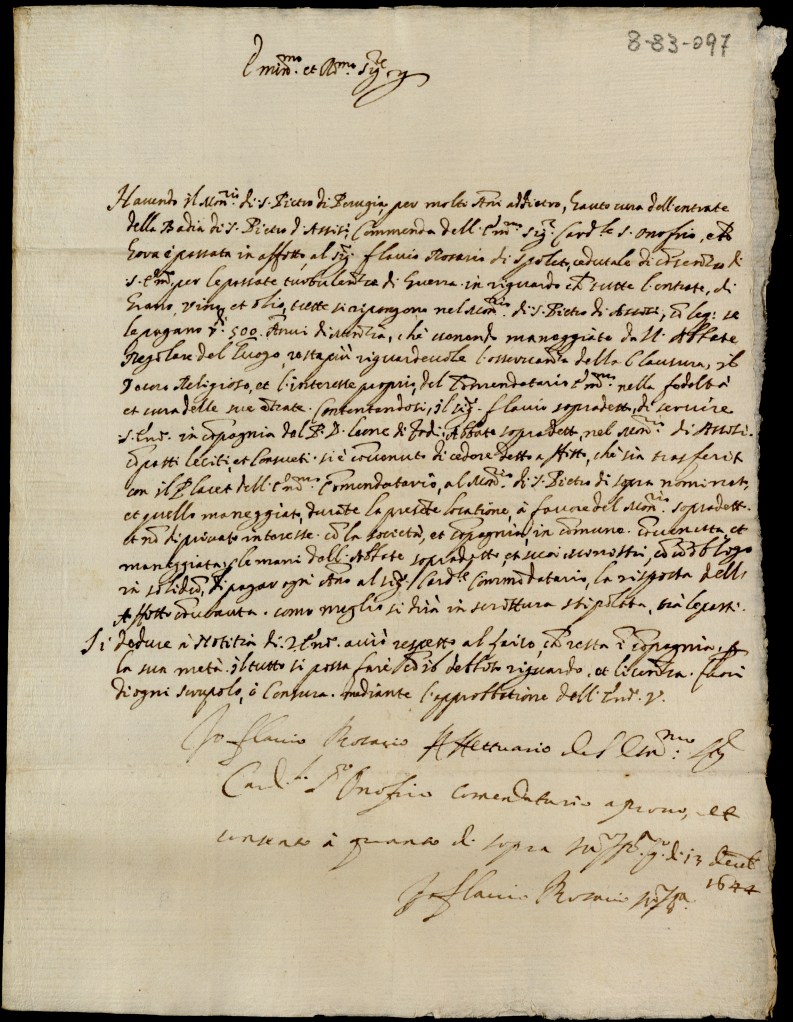 8-83-097
Emin.mo et R.mo Sig.re
Havendo il Mon.rio di S. Pietro di Perugia, per molti Anni addietro, hauto cura dell'entrate
della Badia di S. Pietro d'Assisi, Commenda dell'E.mo Sig.r Card.le S. Onofrio, et
hora è passata in affitto, al Sig. flavio Rosario di Spoleti, cedutale di consenso di
S. Em. per le passate turbulentie di Guerra in riguardo ch tutte l'entrate, di
Grano, Vino, et olio, tutte si ripongono nel Mon.rio di S. Pietro di Assisi,
le pagano 500. Annui di moneta, che venendo maneggiate dall'Abbate
Regolare del luogo, resta più riguardevole l'osservanza della Clausura, il
Decoro Religioso, et l'interesse proprio, del Comendatario E.mo nella fedeltà
et cura delle sue entrate. Contentandosi, il Sig. flavio sopradetto, di servire
S. Em. in Compagnia del P. D. leone di Todi, Abbate sopradetto, nel Mon.rio di Assisi.
Co patti leciti, et Consueti. si è convenuto di cedere detto affitto, che sia trasferito
con il Placet dell'E.mo Comendatario, al Mon.rio di S. Pietro di sopra nominato,
et quello maneggiato, durate la presete locatione, à favore del Mon.rio sopradetto
et no di privato interesse. co la società, et Copagnia, in comune. Covenuta, et
maneggiata, le mani dell'Abbate sopradetto, et suoi Ministri, co obligo
in solidu, di pagar ogni Ano al Sig. Card.le Commendatario, la risposta dello
Affitto convenuto. come meglio si dirà in scrittura stipolata, trà le parti.
Si deduce à Notitia di V. Em. avuto respetto al fatto, ch resta i Copagnia,
la sua metà. il tutto si possa fare co il debito riguardo. et licentia. fuori
di ogni scrupolo, ò Censura. mediante l'approbatione dell'Em. V.
Io flavio Rosario Affittuario dell'Em.mo Sig.
Card.le S.to Onofrio Comendatario aprovo, et
consento à quanto di sopra di 13 decemb
1644
Io flavio Rosario